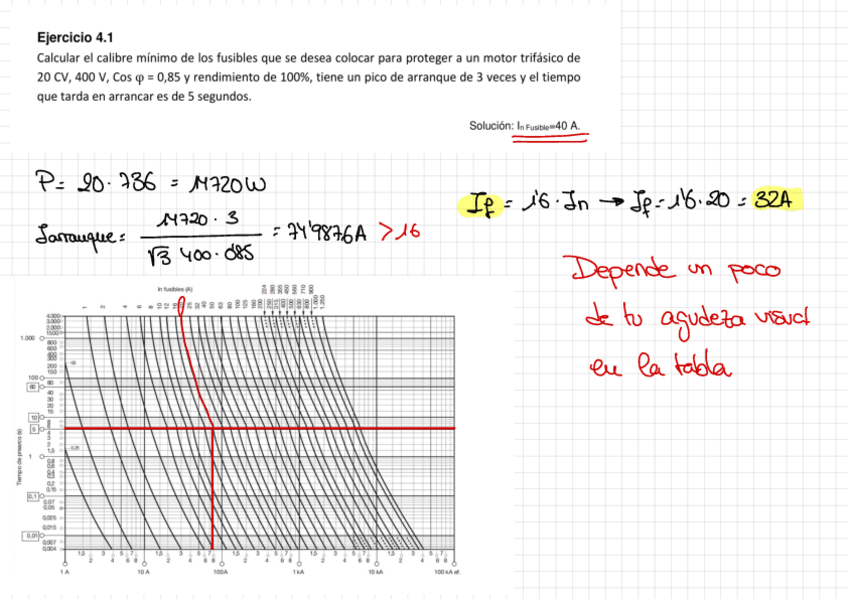 Ejercicio 4.1
Calcular el calibre mínimo de los fusibles que se desea colocar para proteger a un motor trifásico de
20 CV, 400 V, Cos φ = 0,85 y rendimiento de 100%, tiene un pico de arranque de 3 veces y el tiempo
que tarda en arrancar es de 5 segundos.
Solución: In Fusible=40 A.
P= 20·736 = 14720W
Iarranque= 14720·3 / √3 400·0'85 = 74'9876A >16
If = 1'6·In → If=1'6·20 = 32A
Depende un poco
de tu agudeza visual
en la tabla
In fusibles (A)
1 2 4 6 8 10 12 16 25 32 40 50 63 80 100 125 160 200 250 315 400 500 630 800 1.000 1.250
224 280 355 450 560 710 900
4.000
3.000
2.000
1500
1.000
100
10
1
0,1
0,01
0,007
0,004
Tiempo de prearco (s)
1,5 2 3 4 5 6 7 8 1,5 2 3 4 5 6 7 8 1,5 2 3 4 5 6 7 8 1,5 2 3 4 5 6 7 8 1,5 2 3 4 5 6 7 8
1 A 10 A 100A 1 kA 10 kA 100 kA ef.